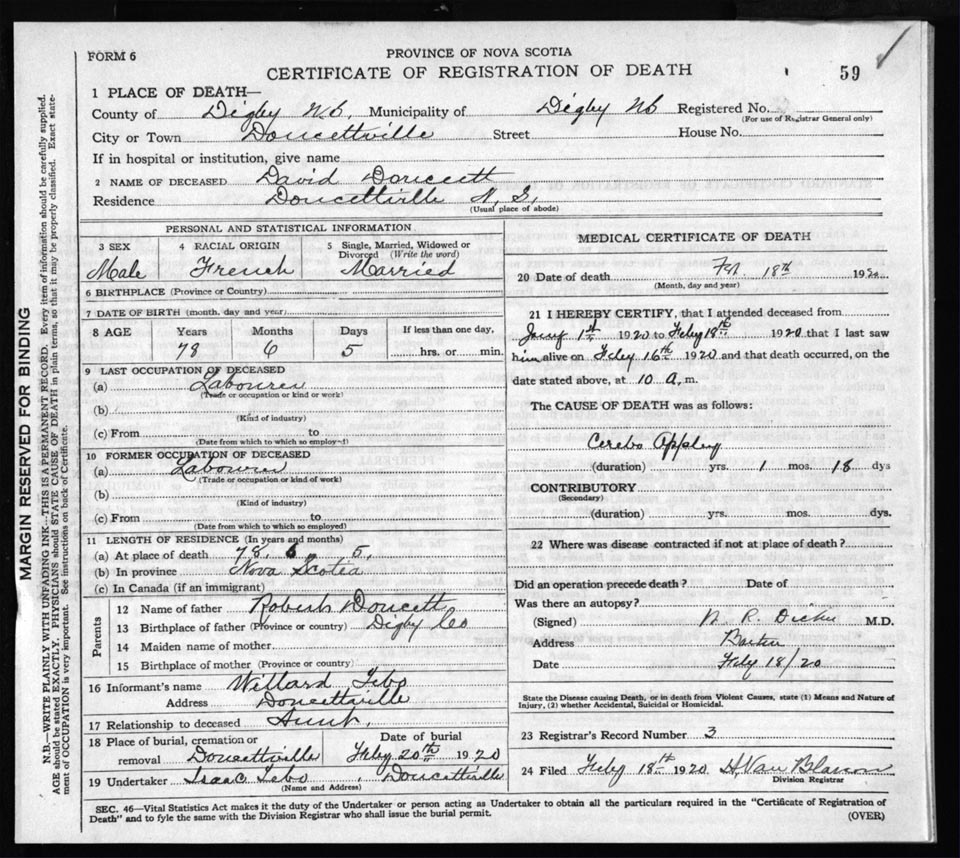 FORM 6
PROVINCE OF NOVA SCOTIA
CERTIFICATE OF REGISTRATION OF DEATH
59
1 PLACE OF DEATH—
County of Digby Municipality of Digby Registered No.
(For use of Registrar General only)
City or Town Doucettville Street House No.
If in hospital or institution, give name
2 NAME OF DECEASED David Doucett
Residence Doucettville N. S.
(Usual place of abode)
PERSONAL AND STATISTICAL INFORMATION
3 SEX 4 RACIAL ORIGIN 5 Single, Married, Widowed or Divorced (Write the word)
Male French Married
6 BIRTHPLACE (Province or Country)
7 DATE OF BIRTH (month, day and year)
8 AGE Years Months Days If less than one day,
78 6 5 hrs. or min.
9 LAST OCCUPATION OF DECEASED
(a) Labourer
(Trade or occupation or kind or work)
(b)
(Kind of industry)
(c) From to
(Date from which to which so employed)
10 FORMER OCCUPATION OF DECEASED
(a) Labourer
(Trade or occupation or kind of work)
(b)
(Kind of industry)
(c) From to
(Date from which to which so employed)
11 LENGTH OF RESIDENCE (In years and months)
(a) At place of death 78, 6 5,
(b) In province Nova Scotia
(c) In Canada (if an immigrant)
Parents
12 Name of father Robert Doucett
13 Birthplace of father (Province or country) Digby Co
14 Maiden name of mother
15 Birthplace of mother (Province or country)
16 Informant's name Willard Tebo
Address Doucettville
17 Relationship to deceased
18 Place of burial, cremation or removal Doucettville Date of burial Feby 20th 1920
19 Undertaker Isaac Tebo, Doucettville
(Name and Address)
MEDICAL CERTIFICATE OF DEATH
20 Date of death 18th 1920
(Month, day and year)
21 I HEREBY CERTIFY, that I attended deceased from
1st 1920 to Feby 18th 1920 that I last saw
him alive on Feby 16th 1920 and that death occurred, on the
date stated above, at 10 a, m.
The CAUSE OF DEATH was as follows:
Cerebo
(duration) yrs. 1 mos. 18 dys
CONTRIBUTORY
(Secondary)
(duration) yrs. mos. dys.
22 Where was disease contracted if not at place of death?
Did an operation precede death? Date of
Was there an autopsy?
(Signed) M.D.
Address
Date Feby 18/20
State the Disease causing Death, or in death from Violent Causes, state (1) Means and Nature of
Injury, (2) whether Accidental, Suicidal or Homicidal.
23 Registrar's Record Number 3
24 Filed Feby 18th 1920
Division Registrar
SEC. 46—Vital Statistics Act makes it the duty of the Undertaker or person acting as Undertaker to obtain all the particulars required in the "Certificate of Registration of
Death" and to fyle the same with the Division Registrar who shall issue the burial permit. (OVER)
MARGIN RESERVED FOR BINDING
N.B.—WRITE PLAINLY WITH UNFADING INK—THIS IS A PERMANENT RECORD. Every item of information should be carefully supplied.
AGE should be stated EXACTLY. PHYSICIANS should STATE CAUSE OF DEATH in plain terms, so that it may be properly classified. Exact state-
ment of OCCUPATION is very important. See instructions on back of Certificate.